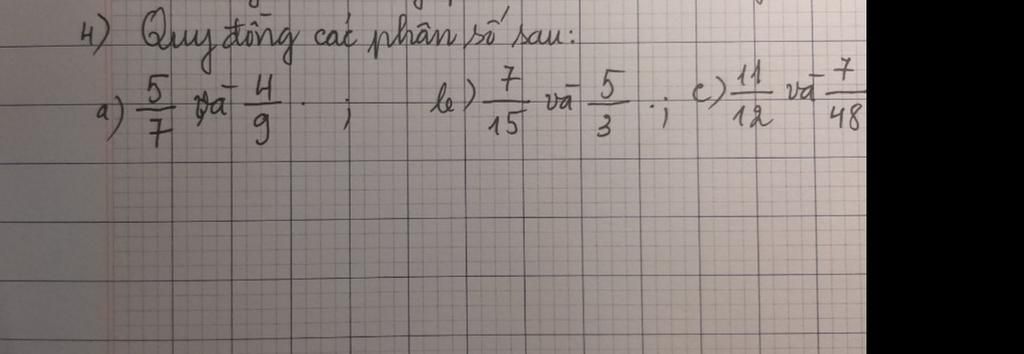 4) Quy đồng các phân số sau:
a) 5/7 và 4/9 ; b) 7/15 và 5/3 ; c) 11/12 và 7/48